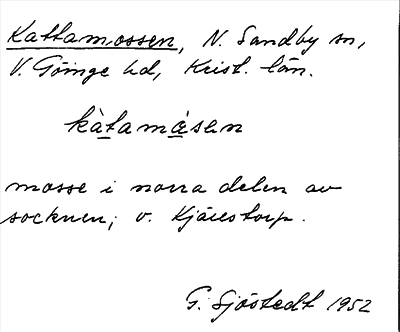 Kattamossen, N. Sandby sn,
V. Göinge hd, Krist. län.
kàtamåsen
mosse i norra delen av
socknen; v. Kjärrstorp.
G. Sjöstedt 1952